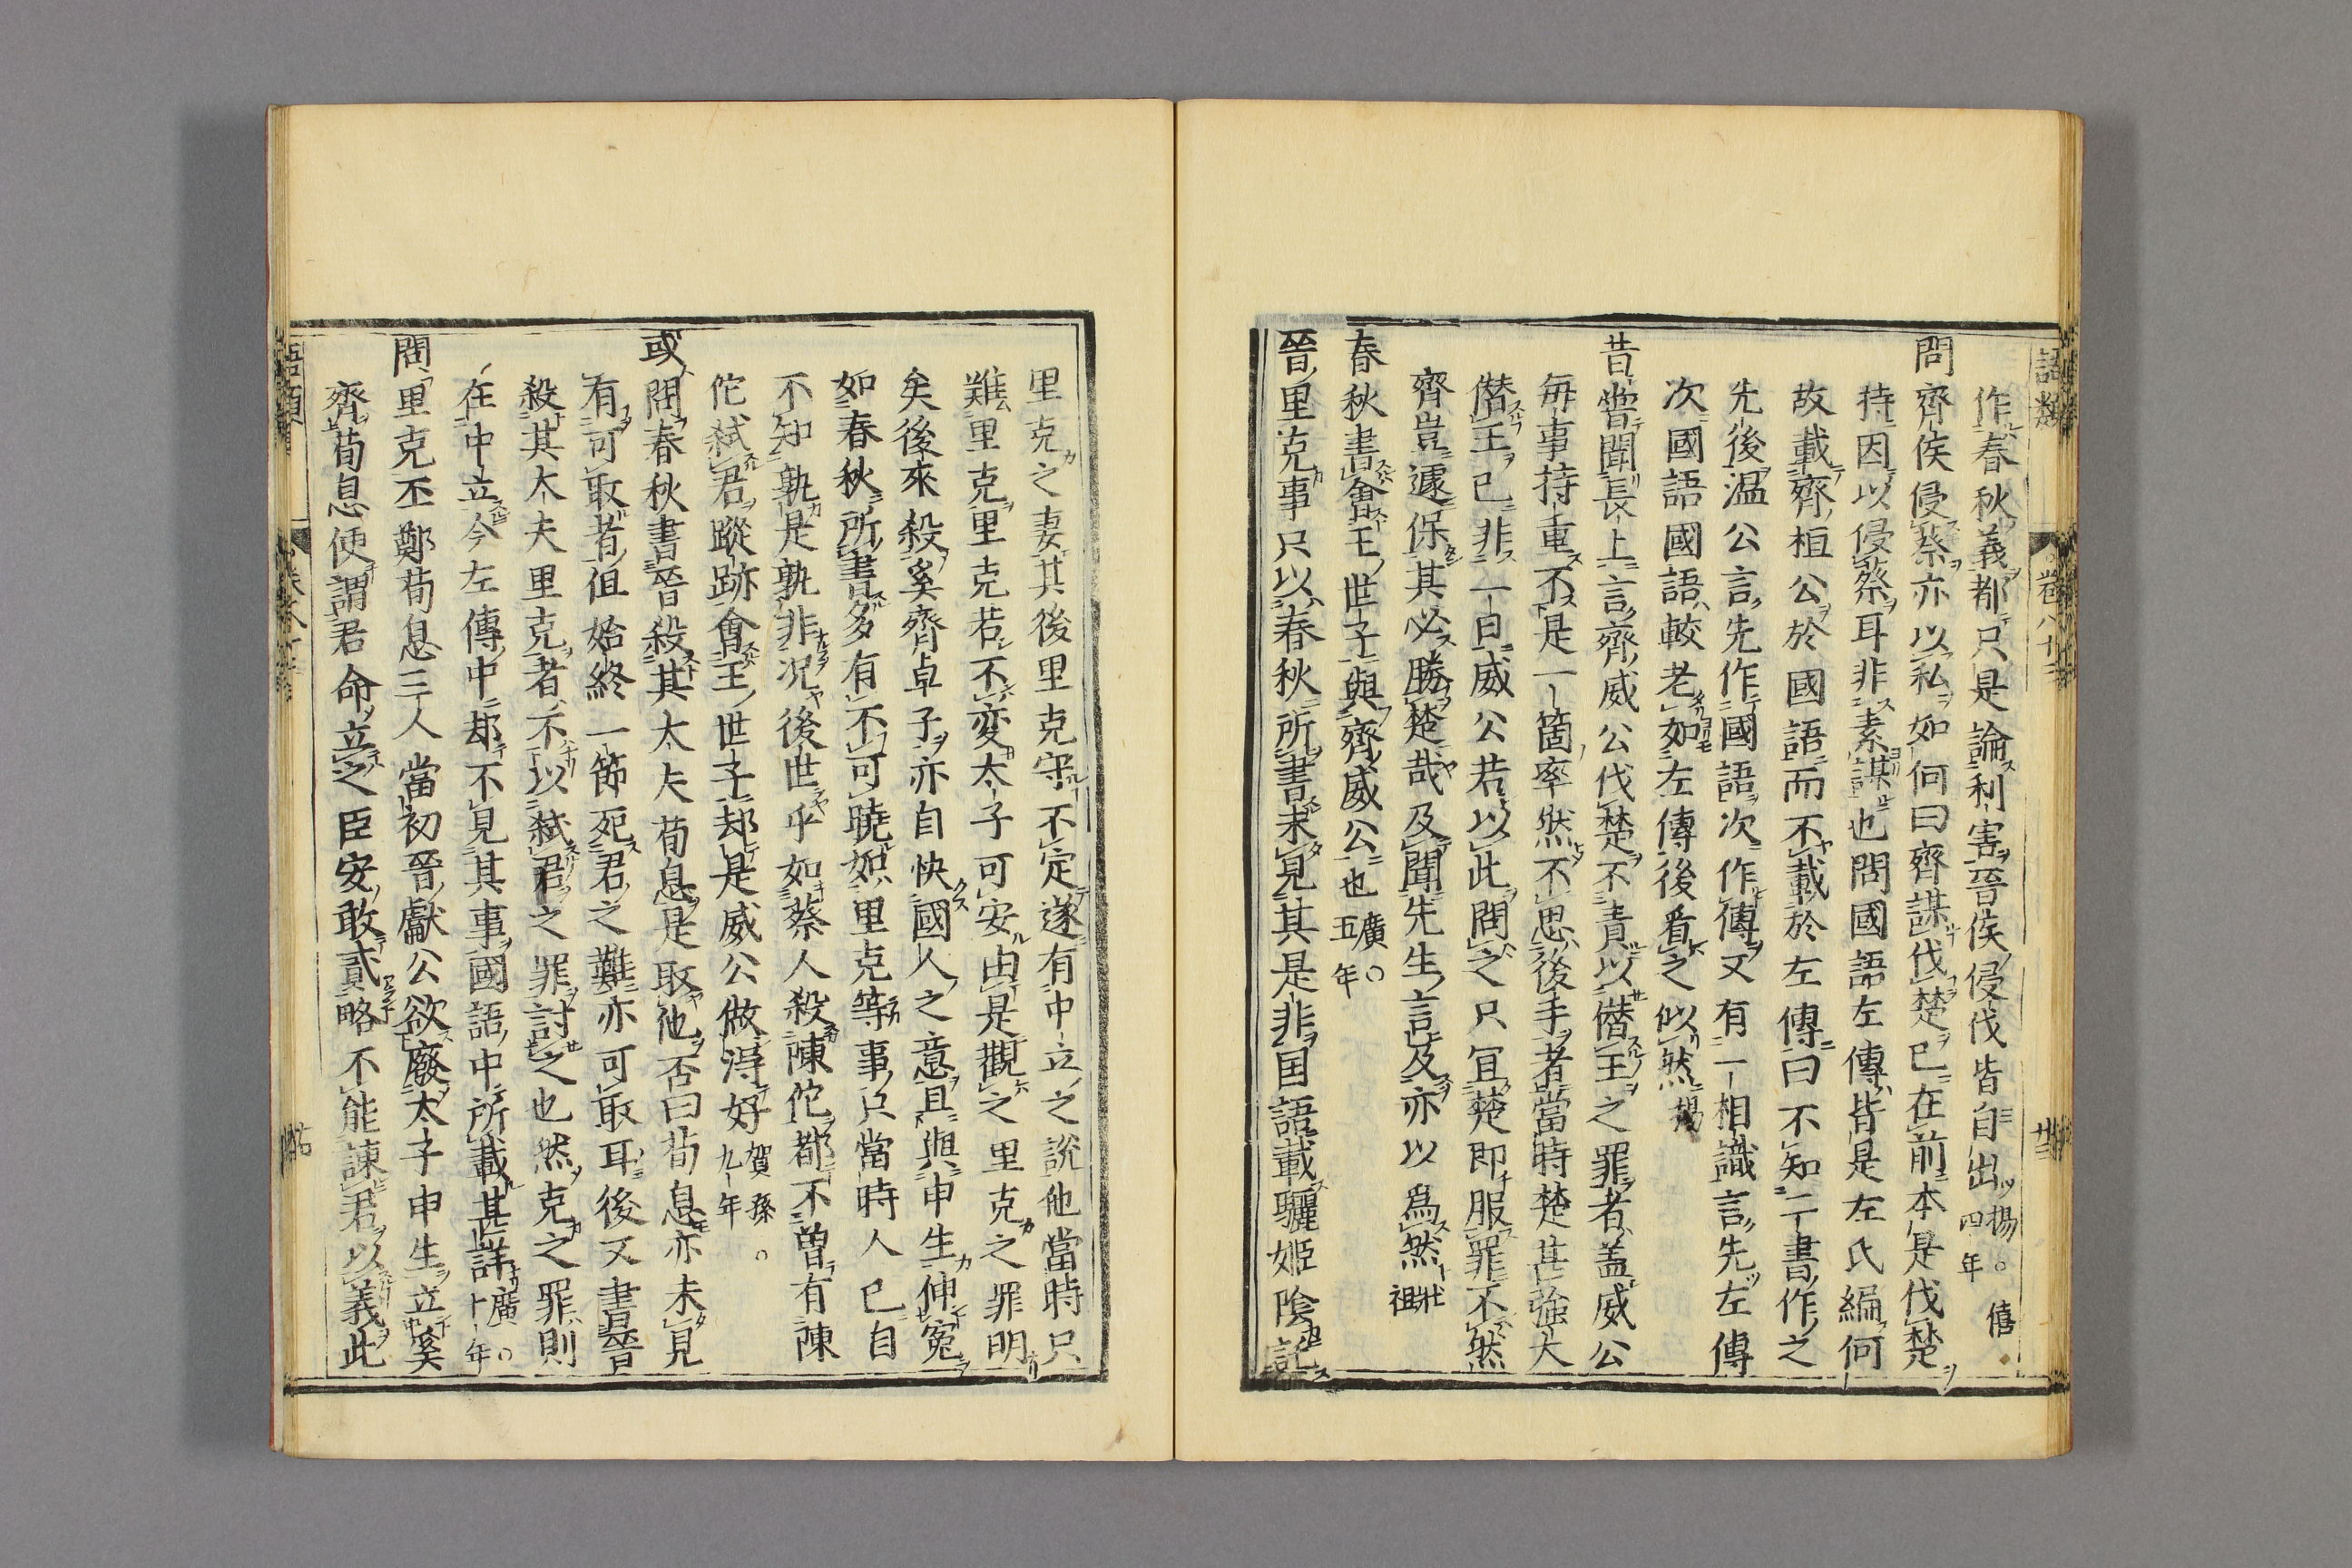 語類
卷八十三
廿三
作春秋義都只是論利害晉侯侵伐皆自出揚○僖四年
問齊侯侵蔡亦以私如何曰齊謀伐楚已在前本是伐楚
特因以侵蔡耳非素謀也問國語左傳皆是左氏編何
故載齊桓公於國語而不載於左傳曰不知二書作之
先後温公言先作國語次作傳又有一相識言先左傳
次國語國語較老如左傳後看之似然揚
昔嘗聞長上言齊威公伐楚不責以僭王之罪者盖威公
每事持重不是一箇率然不思後手者當時楚甚強大
僭王已非一日威公若以此問之只宜楚即服罪不然
齊豈遽保其必勝楚哉及聞先生言及亦以為然壯祖
春秋書會王世子與齊威公也廣○五年
晉里克事只以春秋所書未見其是非国語載驪姬陰託
里克之妻其後里克守不定遂有中立之說他當時只
難里克里克若不変太子可安由是觀之里克之罪明
矣後來殺奚齊卓子亦自快國人之意且與申生伸冤
如春秋所書多有不可曉如里克等事只當時人已自
不知孰是孰非况後世乎如蔡人殺陳佗都不曾有陳
佗弒君蹤跡會王世子却是威公做得好賀孫○九年
或問春秋書晉殺其大夫荀息是取他否曰荀息亦未見
有可取者但始終一節死君之難亦可取耳後又書晉
殺其大夫里克者不以弒君之罪討之也然克之罪則
在中立今左傳中却不見其事國語中所載甚詳廣○十年
問里克丕鄭荀息三人當初晉獻公欲廢太子申生立奚
齊荀息便謂君命立之臣安敢貳略不能諫君以義此
語類